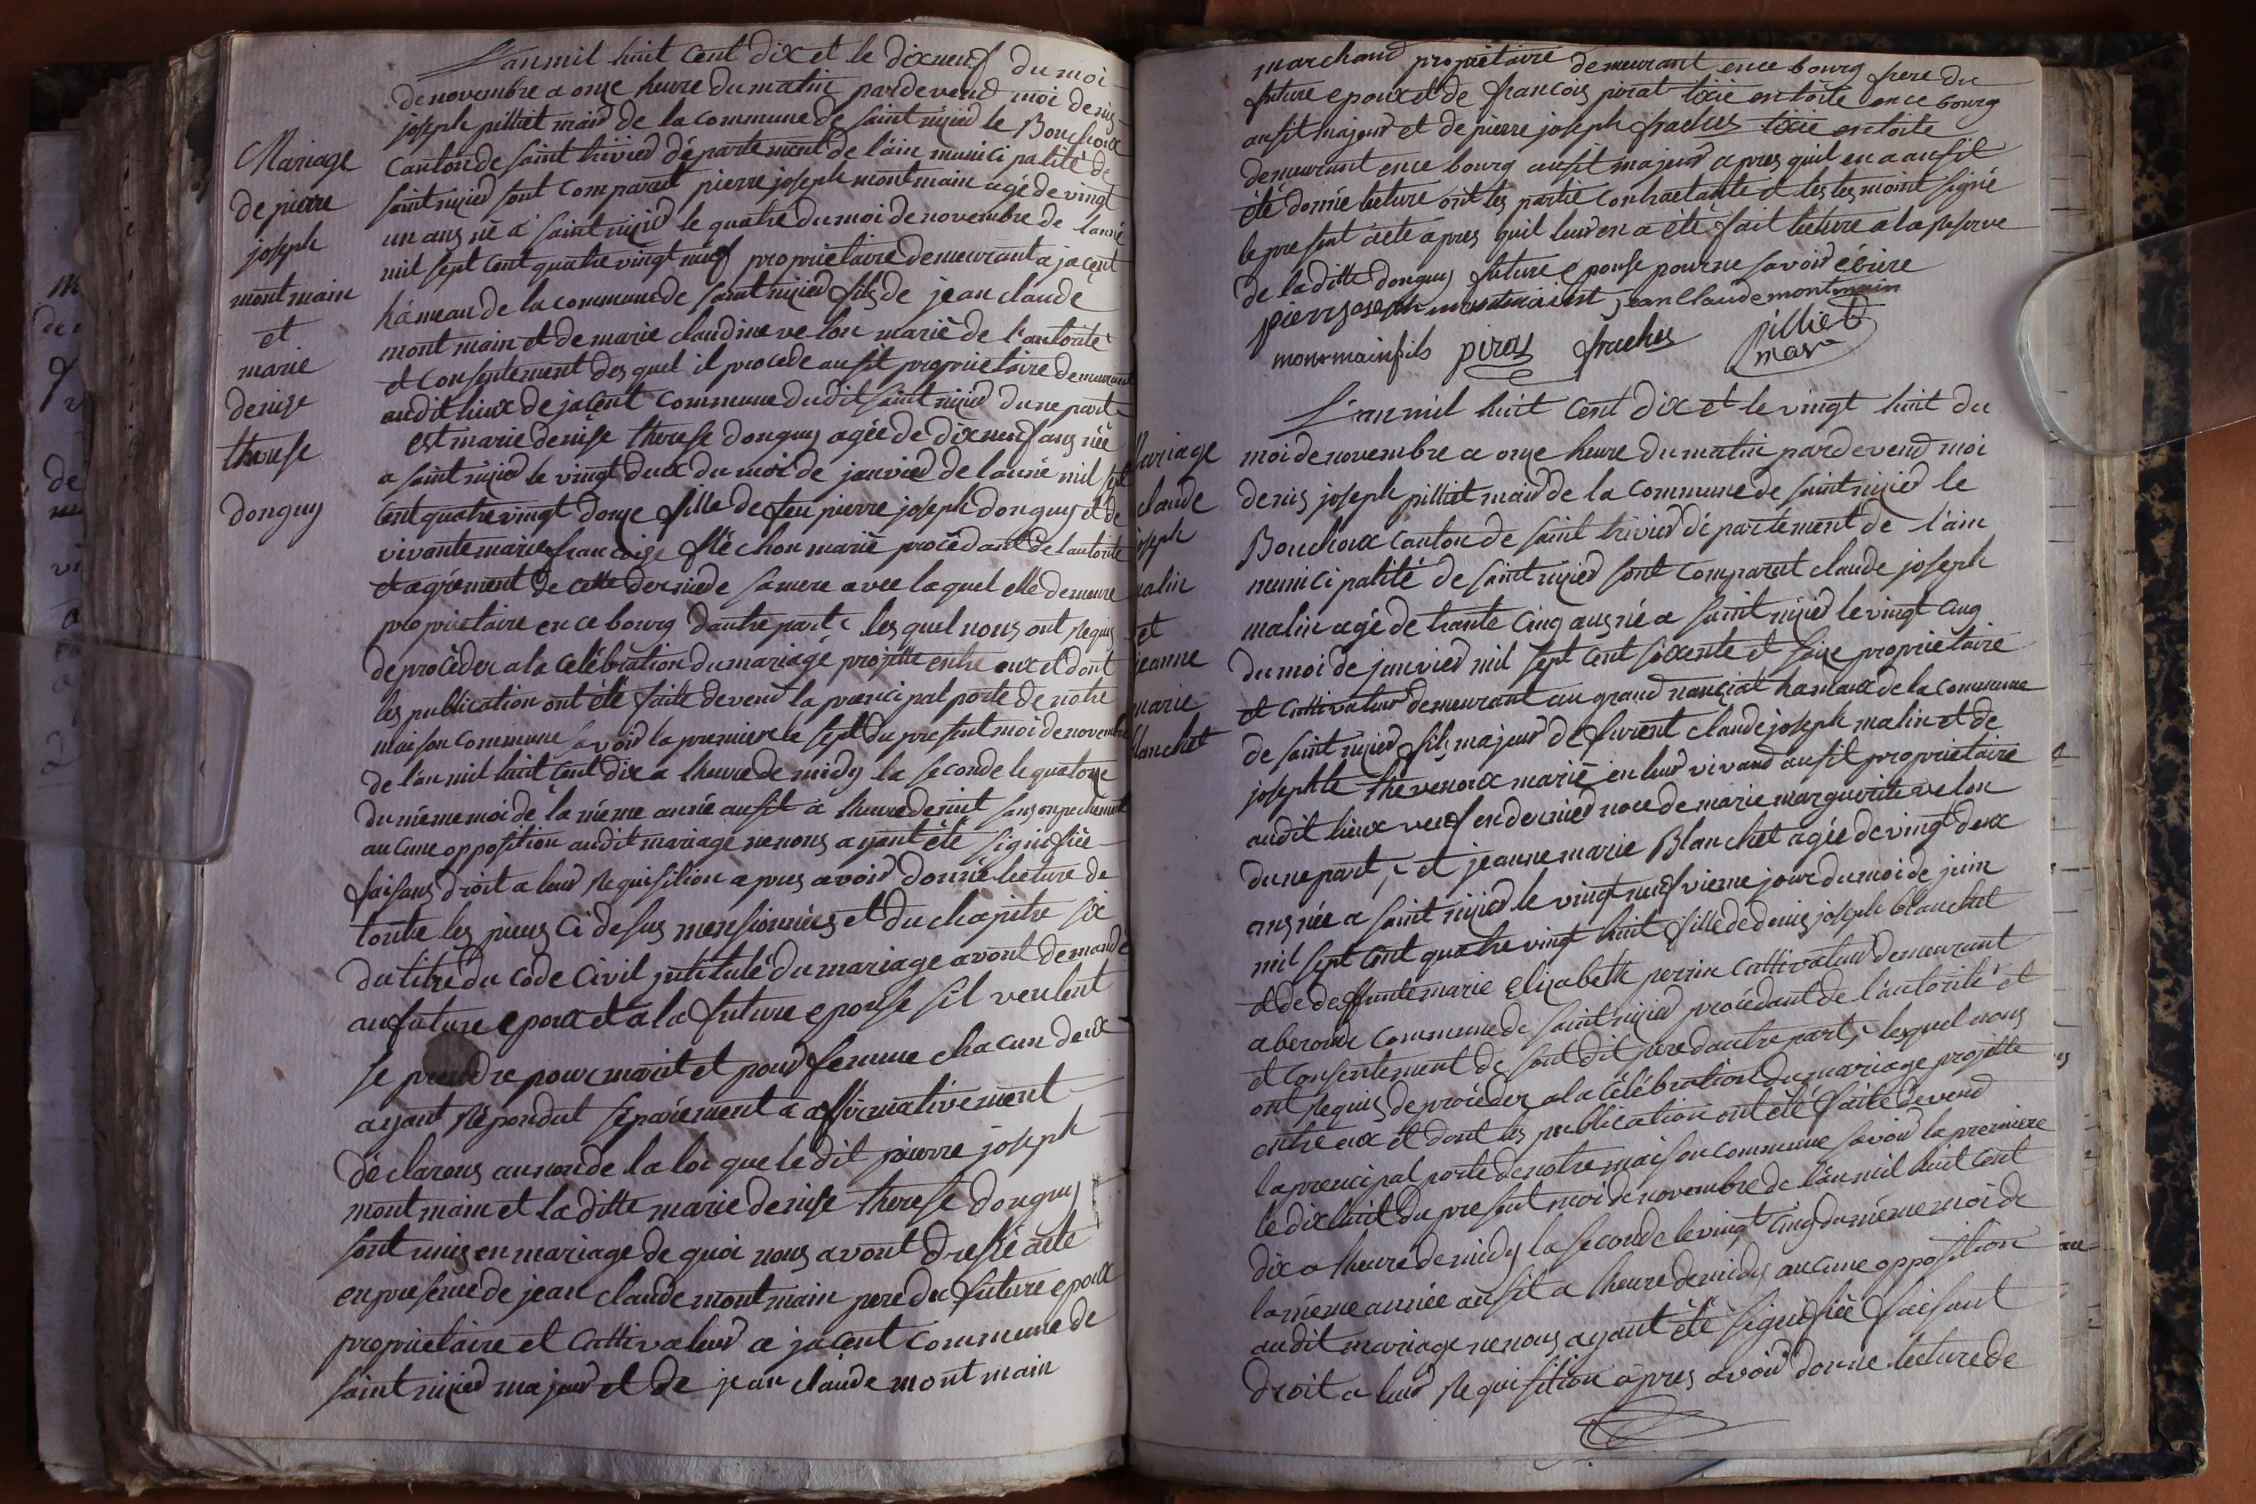 L'an mil huit cent dix et le dixneuf du moi
de novembre a onze heure du matin pardevend moi denis
joseph pilliet maire de la commune de saint nizied le Bouchoux
canton de saint trivied département de l'ain municipalité de
saint nizied sont comparait pierre joseph montmain agé de vingt
un ans né a saint nizied le quatre du moi de novembre de l'anné
mil sept cent quatre vingt neuf proprietaire demeurant a jacent
hámeau de la commune de saint nizied fils de jean claude
mont main et de marie claudine velon marié de l'autorité
et consentement des quel il procede ausit proprietaire demeurant
audit lieux de jacent commune dudit saint nizied dune part
est marie denise therese donguy agée de dixneuf ans née
a saint nizied le vingt deux du moi de janvied de lanné mil sept
cent quatre vingt donze fille de feu pierre joseph donguy et de
vivante marie francoise fléchon marié procèdant de lautorité
et agrément de cette dernied sa mere avec laquel elle demeure
proprietaire en ce bourg dautre part les quel nous ont requis
de procèder a la celébration du mariagé projetté entre eux et dont
les publication ont été faite devend la principal porte de notre
maison commune savoir la premiere le sept du present moi de novembre
de l'an mil huit cent dix a lheure de midy la seconde le quatorze
du méme moi de la méme anné ausit a lheure de midi sans enpechement
aucune opposition audit mariage ne nous ayant été signifiée
faisans droit a leur requisition apres avoir donné lecture de
toute les pieces ci desus mensionnées et du chapitre six
du titre du code civil intitulé du mariage avont demandé
au future epoux et a la future epouse sil veulent
se prendre pour marit et pour femme chacun deux
ayant répondut séparément a affirmativement
déclarons au nom de la loi que le dit pierre joseph
mont main et la ditte marie denise therese donguy
sont unis en mariage de quoi nous avont dressé acte
en presence de jean claude mont main pere du future epoux
proprietaire et cultivateur a jacent commune de
saint nizied majeur et de jean claude mont main
Mariage
de pierre
joseph
montmain
et
marie
denise
therese
donguy
marchand proprietaire demeurant en ce bourg frere du
future epoux et de francois pirat tixié en toile en ce bourg
ausit majeur et de pierre joseph fraches tixie en toite
demeurant en ce bourg ausit majeur apres quil en a ausit
été donné lecture ont les partie contractante et les tesmoint signé
le present acte apres quil leur en a été fait lecture a la reserve
de la ditte donguy future epouse pour ne savoir écrire
pierrjoseph montmaient jean Claude montmain
monmainfils piray fraches pilliet
mair
L'an mil huit cent dix et le vingt huit du
moi de novembre a onze heure du matin pardevend moi
denis joseph pilliet maire de la commune de saint nizied le
Bouchoux canton de saint trivied département de l'ain
municipalité de saint nizied sont comparut claude joseph
malin agé de trante cinq ans né a saint nizied le vingt cinq
du moi de janvied mil sept cent soixente et saize proprietaire
et cultivateur demeurant au grand nanciat hameaux de la commune
de saint nizied fils majeur de furent claude joseph malin et de
josephte thevenoux marié en leur vivand ausit proprietaire
audit lieux veuf en dernied noce de marie marguerite velon
dune part, et jeanne marie Blanchet agée de vingt deux
ans née a saint nizied le vingt neuf vieme jour du moi de juin
mil sept cent quatre vingt huit fille de denis joseph blanchet
et de deffunte marie elizabeth perrin cultivateur demeurant
a beronde commune de saint nizied procédant de l'autorité et
et consentement de sont dit pere dautre part, lesquel nous
ont requis de procéder a la célébration du mariage projetté
entre eux et dont les publication ont été faite devend
la principal porte de notre maison commune savoir la premiere
le dix huit du present moi de novembre de l'an mil huit cent
dix a lheure de midy la seconde le vingt cinq du méme moi de
la méme année ausit a lheure de midy aucune opposition
audit mariage ne nous ayant été signifiée faisant
droit a leur requisition apres avoir donné lecture de
Mariage
claude
joseph
malin
et
jeanne
marie
blanchet